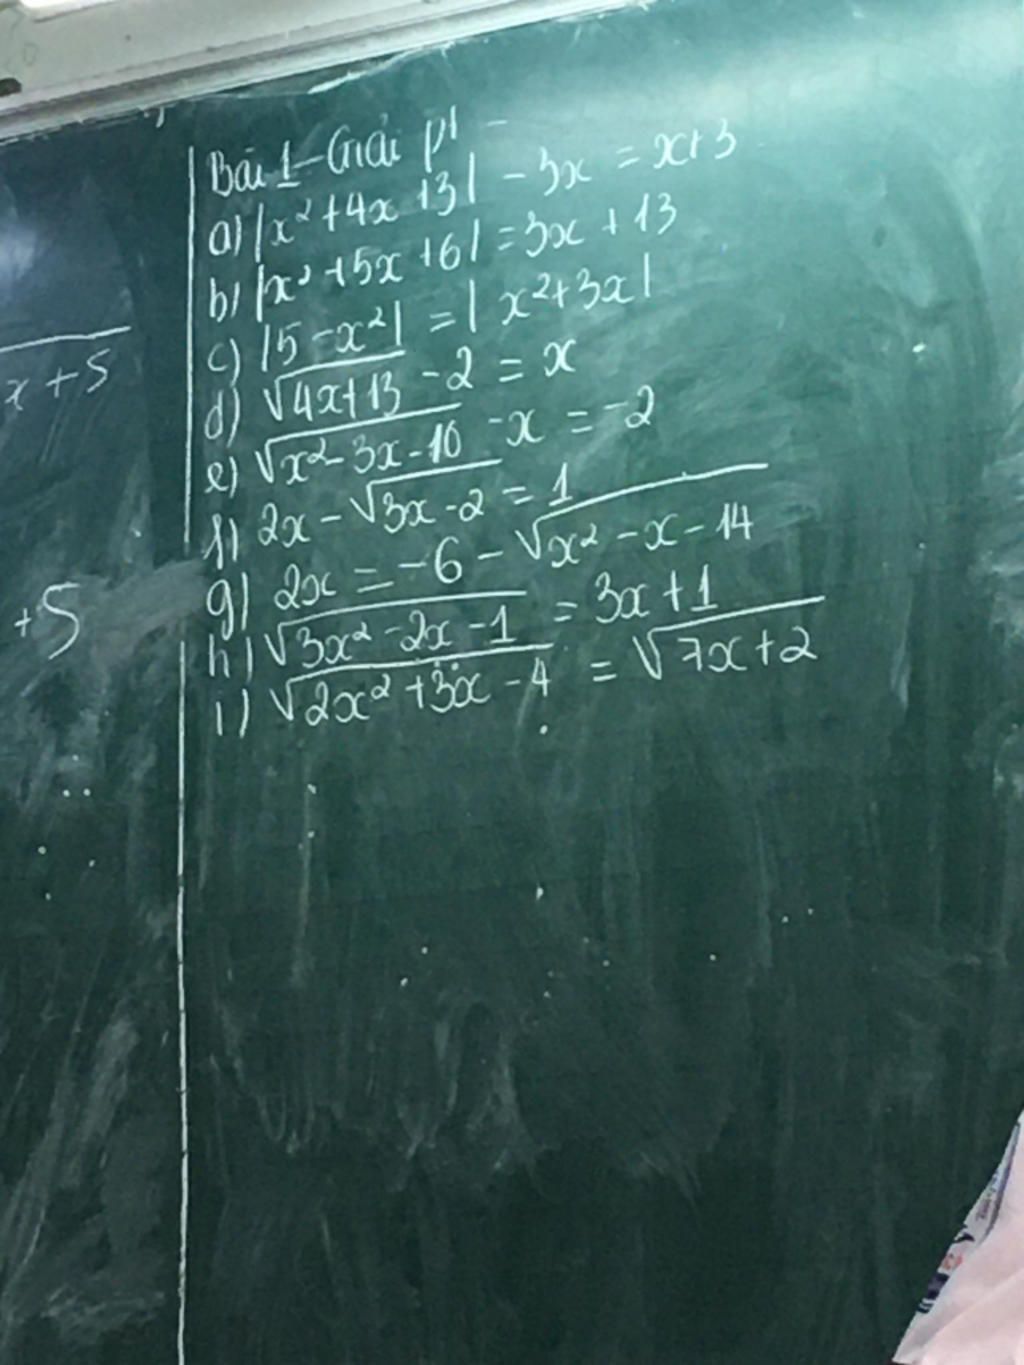 x + 5
+5
Bài 1 - Giải pt
a) |x² + 4x + 3| - 3x = x + 3
b) |x² + 5x + 6| = 3x + 13
c) |5 - x²| = |x² + 3x|
d) √(4x + 13) - 2 = x
e) √(x² - 3x - 10) - x = -2
f) 2x - √(3x - 2) = 1
g) 2x = -6 - √(x² - x - 14)
h) √(3x² - 2x - 1) = 3x + 1
i) √(2x² + 3x - 4) = √(7x + 2)